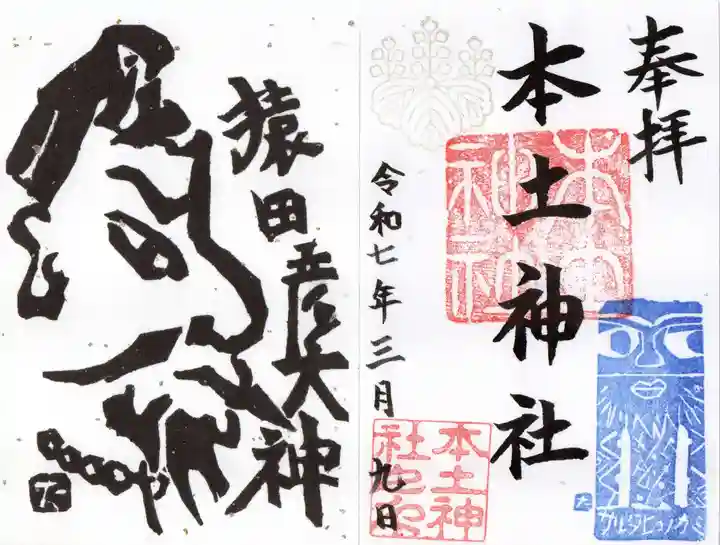 奉拝
本土神社
令和七年三月九日
本土神社
本土神社之印
サルタヒコノカミ
猿田彦大神